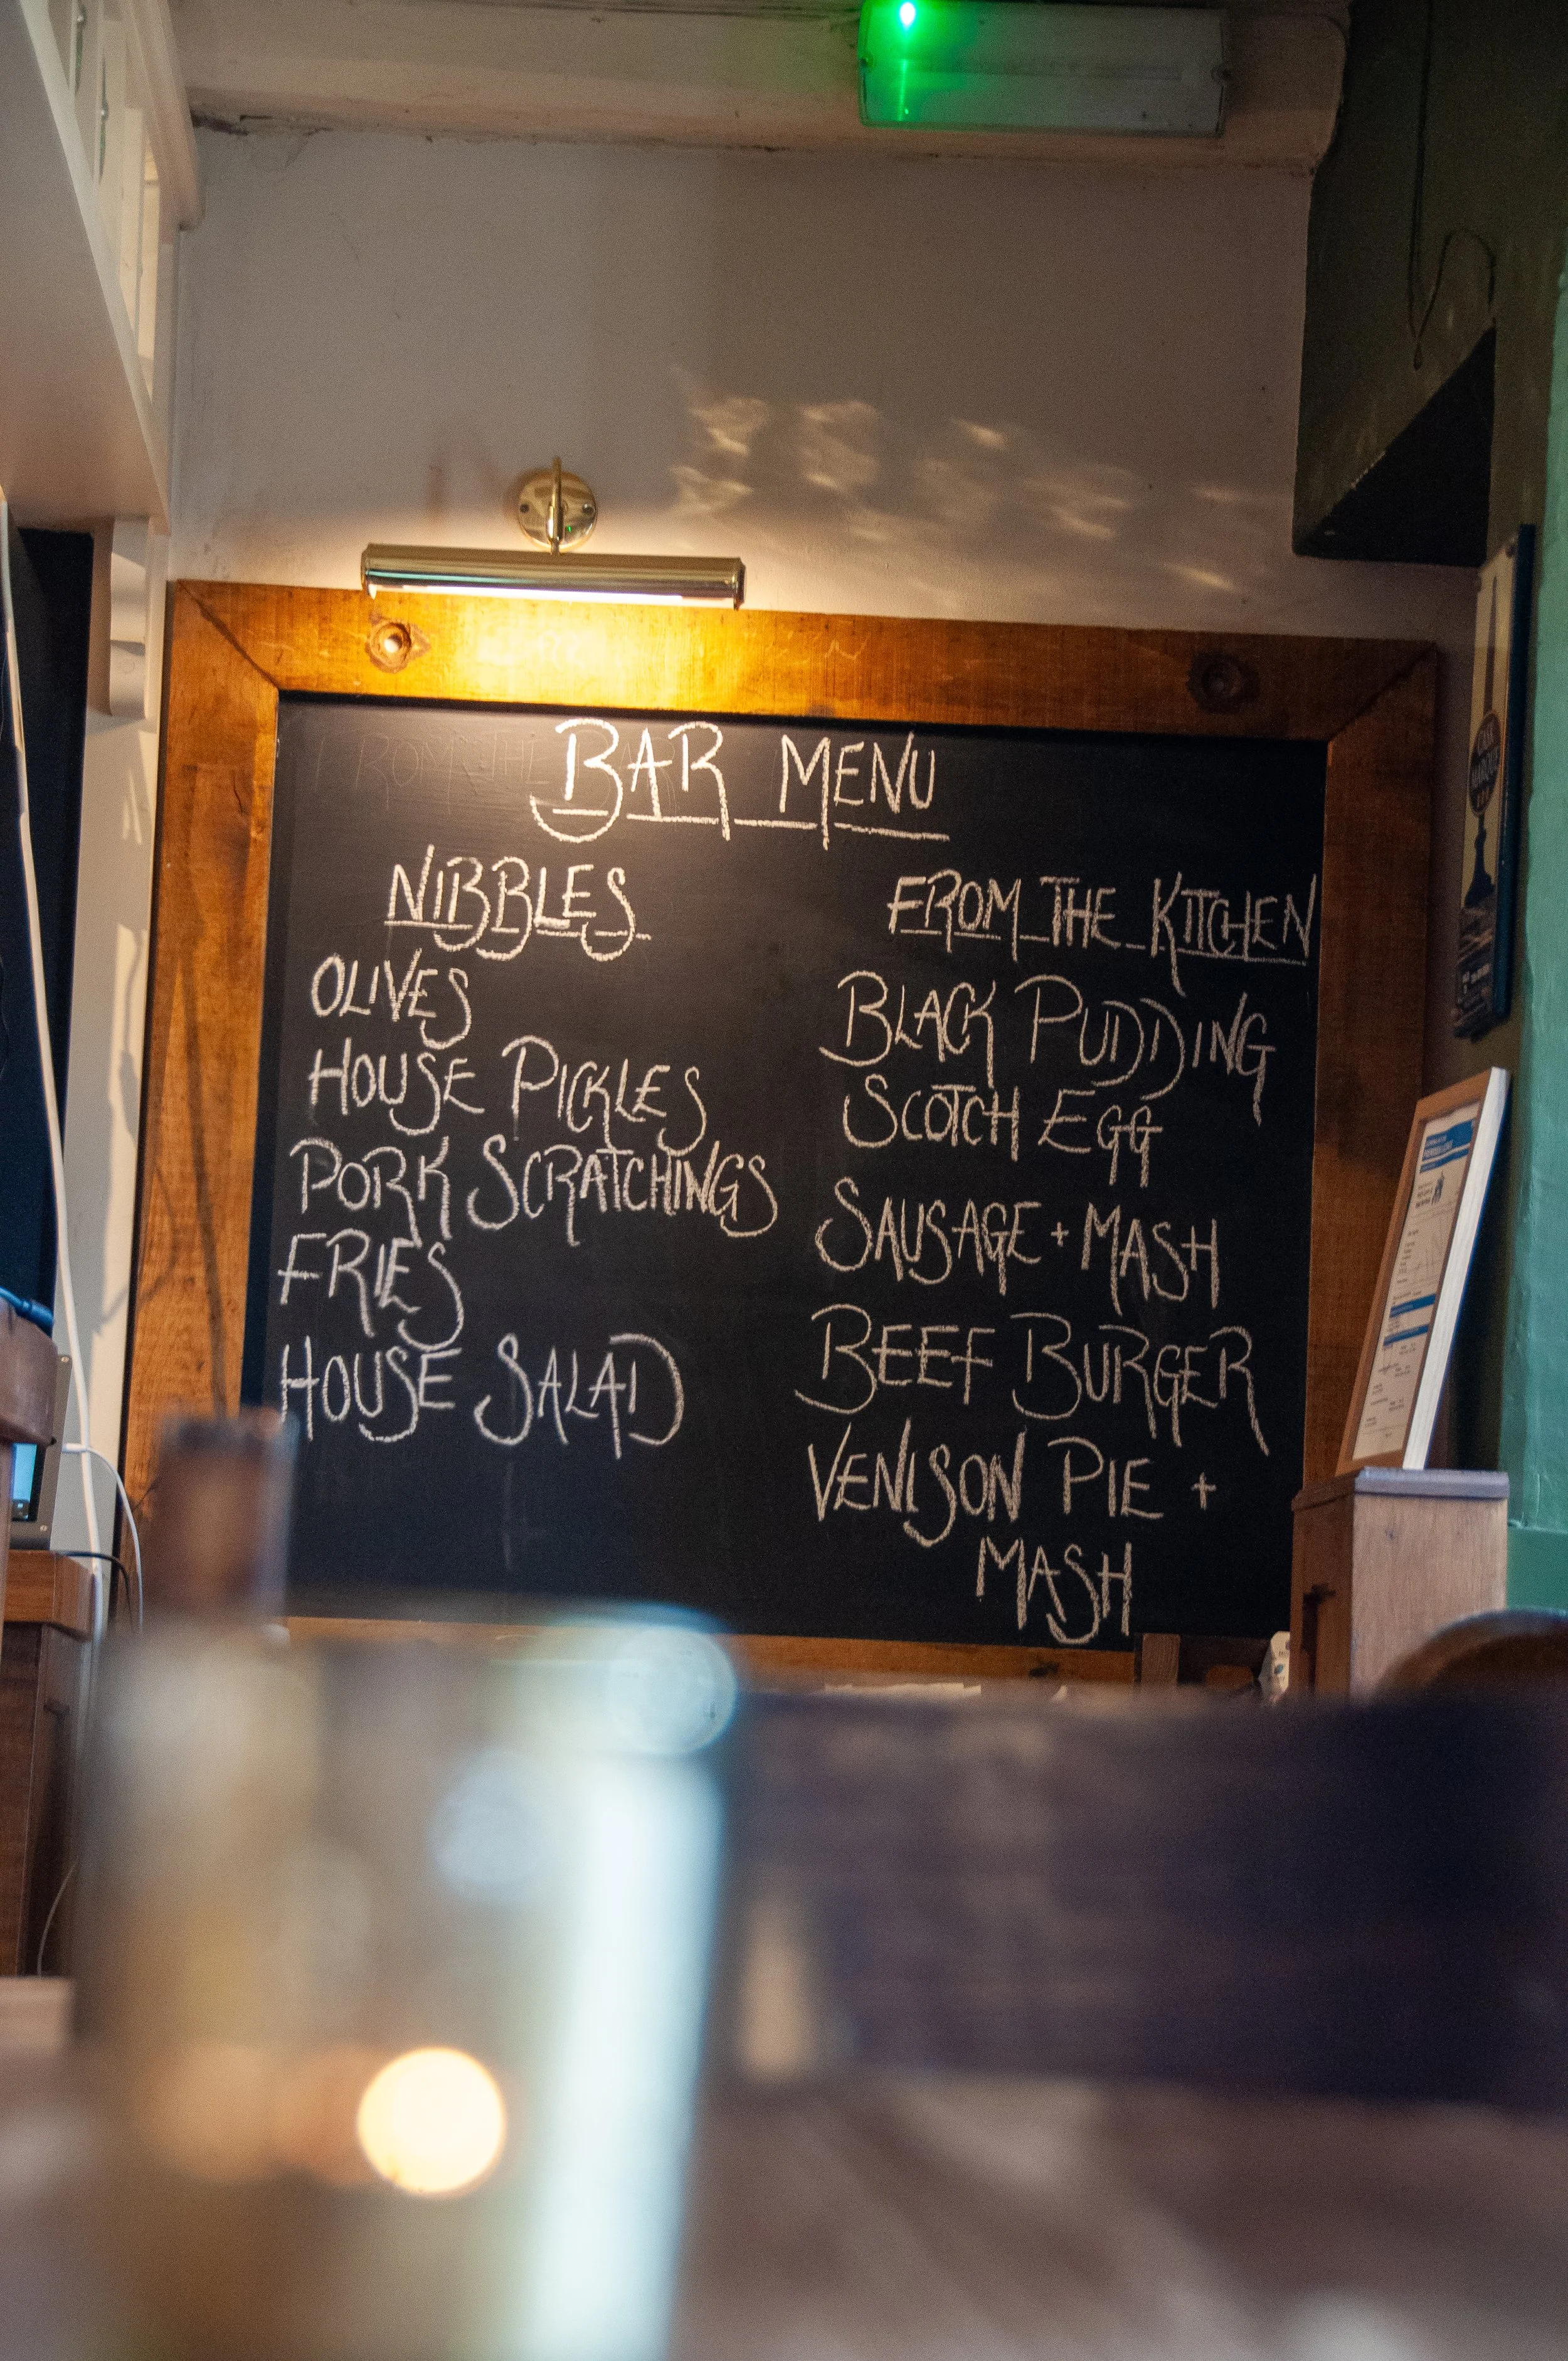 BAR MENU
NIBBLES
OLIVES
HOUSE PICKLES
PORK SCRATCHINGS
FRIES
HOUSE SALAD
FROM THE KITCHEN
BLACK PUDDING
SCOTCH EGG
SAUSAGE + MASH
BEEF BURGER
VENISON PIE +
MASH
CASK
MARQUE